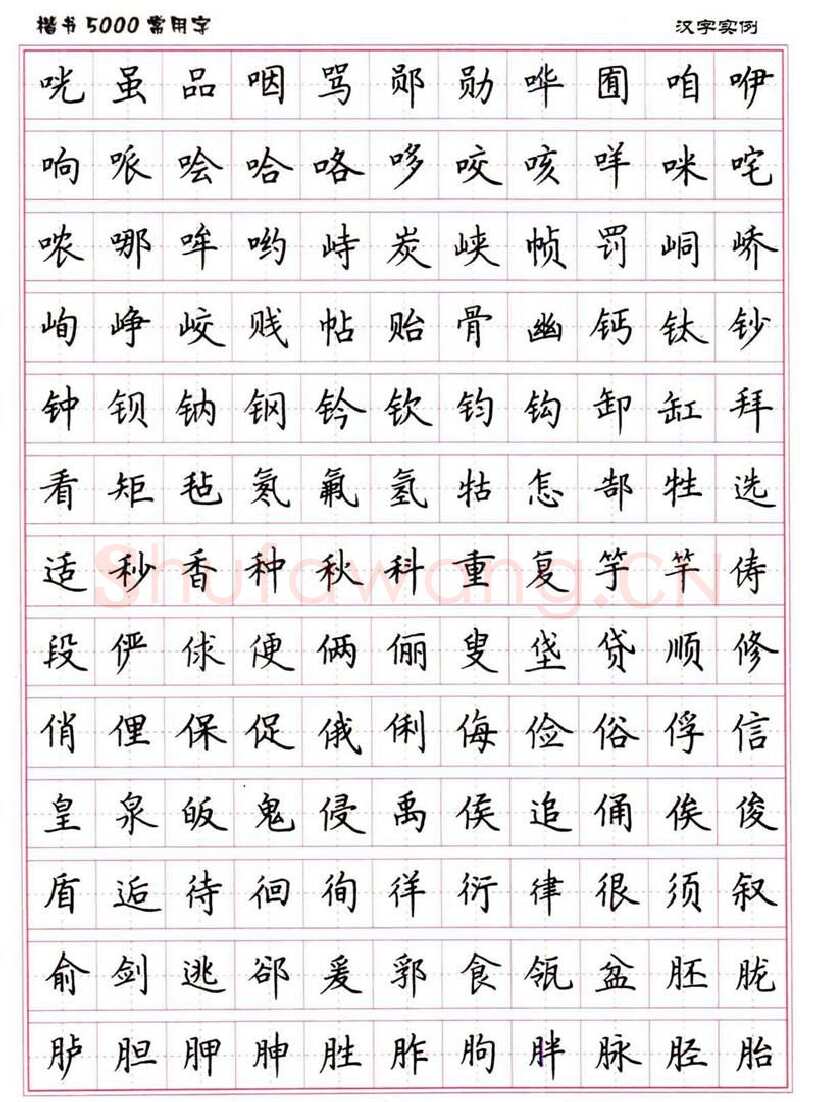 楷书5000常用字 汉字实例
咣虽品咽骂郧勋哗囿咱咿
响哌哙哈咯哆咬咳咩咪咤
哝哪哞哟峙炭峡帧罚峒峤
峋峥峧贱帖贻骨幽钙钛钞
钟钡钠钢钤钦钧钩卸缸拜
看矩毡氡氟氢牯怎郜牲选
适秒香种秋科重复竽竿俦
段俨俅便俩俪叟垡贷顺修
俏俚保促俄俐侮俭俗俘信
皇泉皈鬼侵禹侯追俑俟俊
盾逅待徊徇徉衍律很须叙
俞剑逃郤爰郛食瓴盆胚胧
胪胆胛胂胜胙朐胖脉胫胎
ShufaWang.CN